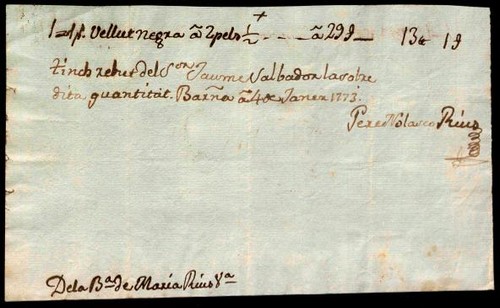 +
1=1p. Vellut negra â 2 pels 1/2 - - - - â 29 ϑ — 13 1ϑ
tinch rebut del Sor. Jaume Salbador la sobre
dita quantitat. Barña â 4 de Janer 1773.
Pere Nolasco Rius
De la Ba. de Maria Rius Va